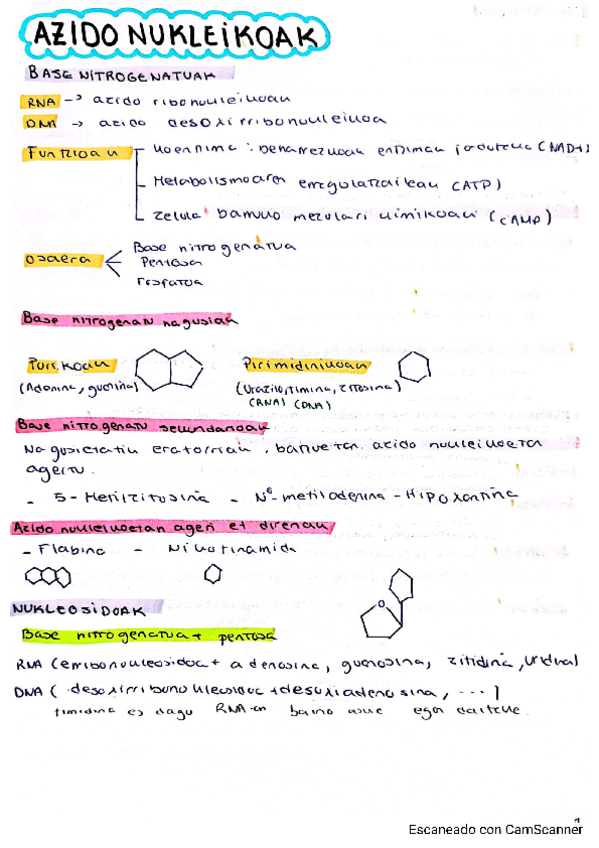 AZIDO NUKLEIKOAK
BASE NITROGENATUAK
RNA -> azido ribonukleikoak
DNA -> azido desoxirribonukleikoa
Funtzioak
koentzima : beharrezkoak entzimak
(NAD+)
Metabolismoaren erregulatzaileak (ATP)
zelula barruko mezulari kimikoak (cAMP)
osaera
Base nitrogenatua
Pentosa
Fosfatoa
Base nitrogenatu nagusiak
Purikoak
Pirimidinikoak
(Adenina, guanina)
(Uraziloa, timina, zitosina)
(RNA) (DNA)
Base nitrogenatu sekundarioak
Nagusietatik eratorriak, batzuetan azido nukleikoetan
agertu.
- 5-Metilzitosina - N6-metiladenina - Hipoxantina
Azido nukleikoetan agertzen ez direnak
- Flabina - Nikotinamida
NUKLEOSIDOAK
Base nitrogenatua + pentosa
RNA (erribonukleosidoa + adenosina, guanosina, zitidina, uridina)
DNA (desoxirribonukleosidoa + desoxiadenosina, ...)
timidina ez dago RNA-n baino egon daiteke.
1
Escaneado con CamScanner